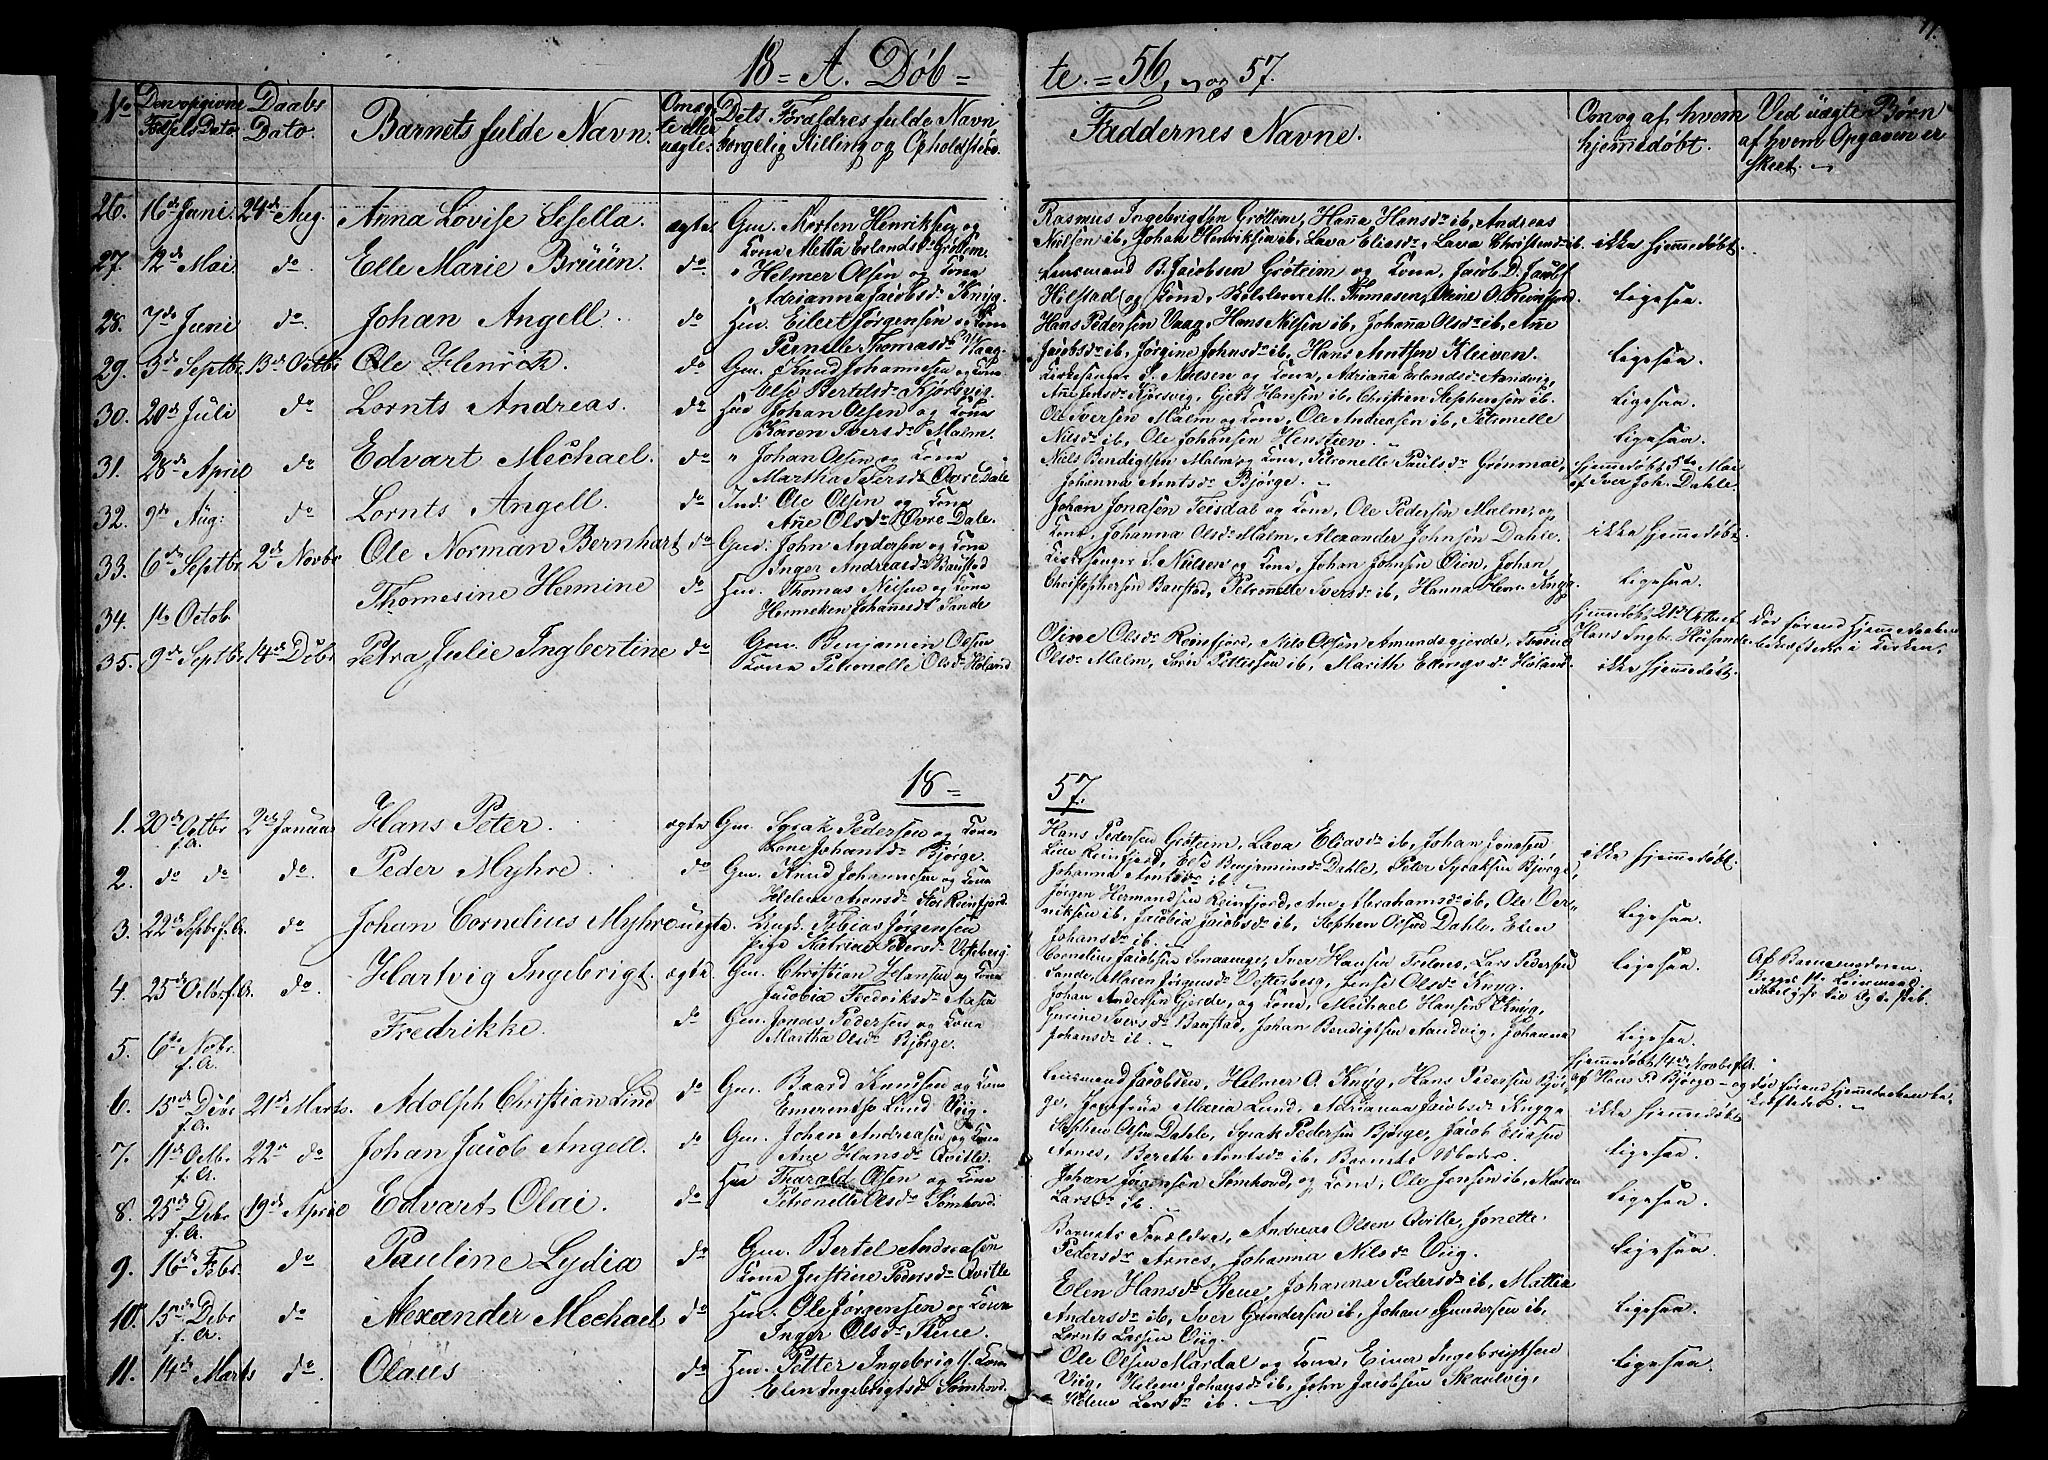 11.
18 = A. Döb = te. = 56, og 57.
No Den opgivne Fødsels Dato. Daabs Dato. Barnets fulde Navn. Om ægte eller uægte. Dets Forældres fulde Navn borgelig Stilling og Opholdsted. Faddernes Navne. Om og af hvem hjemmedøbt. Ved uægte Børn af hvem Opgaven er skeet.
26. 16de Juni. 24de Aug. Anna Lovise Sesella. ægte Gm. Morten Henriksen og
Kona Metta Erlandsdr Grøttem.
Rasmus Ingebrigtsen Grøttem, Hanna Hansdr ib, Andreas
Nielsen ib, Johan Henriksen ib, Lava Eliasdr, Lava Christensdr ib. ikke hjemmedøbt.
27. 12te Mai do. Elle Marie Brüün. do. " Helmer Olsen og Kona
Adrianna Jacobsdr Knyg.
Lensmand B. Jacobsen Grøteim og Kona, Jacob D. Jacobs
Hilstad og Kona, Skolelærer M. Thomasen, Oline O. Reinfjord. Ligesaa.
28. 7de Juni do. Johan Angell. do Hm. Eilert Jørgensen og Kona
Pernelle Thomasdr Vaag.
Hans Pedersen Vaag, Hans Nilsen ib, Johanna Olsdr ib, Ane
Jacobsdr ib, Jørgine Johnsdr ib, Hans Arntsen Kleiven. Ligesaa.
29. 3de Septbr. 13de Octbr Ole Henrik. do Gm. Knud Johannesen og Kona
Else Bertelsdr Kjørsvig.
Kirkesanger S. Nielsen og Kona, Adrianna Erlandsdr Sandvig,
Ane Jensdr Kjørsvig, Gjert Hansen ib, Christen Stephensen ib. Ligesaa.
30. 20de Juli do Lornts Andreas. do Hm Johan Olsen og Kona
Karen Iversdr Malm.
Ole Iversen Malm og Kona, Ole Andreasen ib, Petronelle
Nilsdr ib, Ole Johansen Henstien. Ligesaa.
31. 28de April do Edvart Mechael. do " Johan Olsen og Kona
Martha Petersdr Øvre Dale
Niels Bendigtsen Malm og Kona, Petronelle Paulsdr Grönmoe,
Johanna Arntsdr Bjørge. Hjemmedøbt 5te Mai
af Iver Joh. Dahle.
32. 9de Aug: do Lornts Angell. do Ind. Ole Olsen og Kona
Ane Olsdr Øvre Dale.
Johan Jonasen Teisdal og Kona, Ole Pedersen Malm, og
Kona, Johanna Olsdr Malm, Alexander Johnsen Dahle. ikke hjemmedøbt.
33. 6de Septbr. 2de Novbr Ole Norman Bernhart do Gm. John Andersen og Kona
Inger Andreasdr Baustad
Kirkesanger S. Nielsen og Kona, Johan Johnsen Øien, Johan
Christophersen Baustad, Petronelle Iversdr ib, Hanna Henr. Knyg. Ligesaa.
34. 1te Octob. Thomesine Hermine do Hm. Thomas Nilsen og Kona
Henneken Johannesdr Sande
Hjemmedøbt 21de Octbr af
Hans Ingbr. Husande Dør forend Hjemmedaaben
bekræftedes i Kirken.
35. 9de Septbr. 14de Debr. Petra Julie Ingbertine do Gm. Benjamin Olsen
Kona Petronelle Olsdr Høland
Oline Olsdr Reinfjord, Nils Olsen Amundsgjerde,
Olsdr Malm, Søren Pettersen ib, Marith Ellingsdr Høland. ikke hjemmedøbt.
18 = 57.
1. 20de Octbr f.A. 2den Januar Hans Peter. ægte Gm. Syrak Pedersen og Kona
Lone Johansdr Bjørge.
Hans Pedersen Grøteim, Lava Eliasdr ib, Johan Jonasen
Lille Reinfjord, Else Benjaminsdr Dahle, Peter Syraksen Bjørge,
Johanna Arntsdr ib. ikke hjemmedøbt.
2. do do do. Peder Myhre. do Gm. Knud Johannesen og Kona
Helene Arensdr Stor Reinfjord.
Jørgen Hermandsen Reinfjord, Ane Abrahamsdr ib, Ole
niksen ib, Jacobia Jacobsdr ib, Stephen Olsen Dahle, Elen
Johansdr ib. Ligesaa.
3. 22de Septbr f.A. do Johan Cornelius Myhre uægte. Ungk. Tobias Jørgensen
Pige Katrina Pedersdr Vesteberg.
Cornelius Jacobsen, Iver Hansen, Lars Pedersen
Sande, Maren Jørgensdr Vesterberg, Jense Olsdr Knyg. Ligesaa. Af Barnemoderen.
Begges 1te Leiermaal
4. 25de Octbr f.A. do. Hartvig Ingebrigt. ægte. Gm. Christian Hansen og Kona
Jacobia Fredriksdr Aasen
Johan Andersen Gjerde, og Kona, Mechael Hansen Knyg,
Gurine Iversdr Baustad, Johan Bendigtsen Sandvig, Johanna
Johansdr ib. Ligesaa.
5. 6te Nobr. f.A. Fredrikke. do Gm. Jonas Pedersen og Kona
Martha Olsdr Bjørge.
Hjemmedøbt 14de Novbr f.A.
af Hans P. Bjørge og døe forend Hjemmedaaben be-
kræftedes.
6. 15de Debr f.A. 21de Marts. Adolph Christian Lind do Gm. Baard Knudsen og Kona
Emerentse Lund Viig.
Lensmand Jacobsen, Helmer O. Knyg, Hans Pedersen Bjør-
ge, Jomfrue Maria Lund, Adrianna Jacobsdr Knygge ikke hjemmedøbt
7. 11de Octbr. f.A. 22de do Johan Jacob Angell. do Gm. Johan Andreasen og Kona
Ane Hansdr Qville.
Stephen Olsen Dahle, Syrak Pedersen Bjørge, Jacob Eliasen
Arnes, Bereth Arntsdr ib, Barnets Moder. Ligesaa.
8. 25de Debr f.A. 19de April Edvart Olai. do Hm Tharald Olsen og Kona
Petronelle Olsdr Somhovd.
Johan Jørgensen Somhovd, og Kona, Ole Jensen ib, Maren
Larsdr ib. Ligesaa.
9. 16de Febr. do Pauline Lydia do Gm. Bertel Andreasen
Kona Justine Pedersdr Qville
Barnets Forældre, Andreas Olsen Qville, Jonette
Pedersdr Arnes, Johanna Nilsdr Viig. Ligesaa.
10. 15de Debr f.A. do Alexander Mechael do Hm. Ole Jørgensen og Kona
Inger Olsdr Stene.
Elen Hansdr Stene, Johanna Pedersdr ib, Mattea
Andersdr ib, Iver Gundersen ib, Johan Gundersen ib,
Lornts Larsen Viig. Ligesaa.
11. 14de Marts do. Olaus do Hm. Petter Ingebrigts. Kona
Elen Ingebrigtsdr Somhovd.
Ole Olsen Mardal og Kona, Einer Ingebrigtsen
Viig, Helene Johansdr ib, John Jacobsen Skaulvig,
Helene Larsdr ib. Ligesaa.